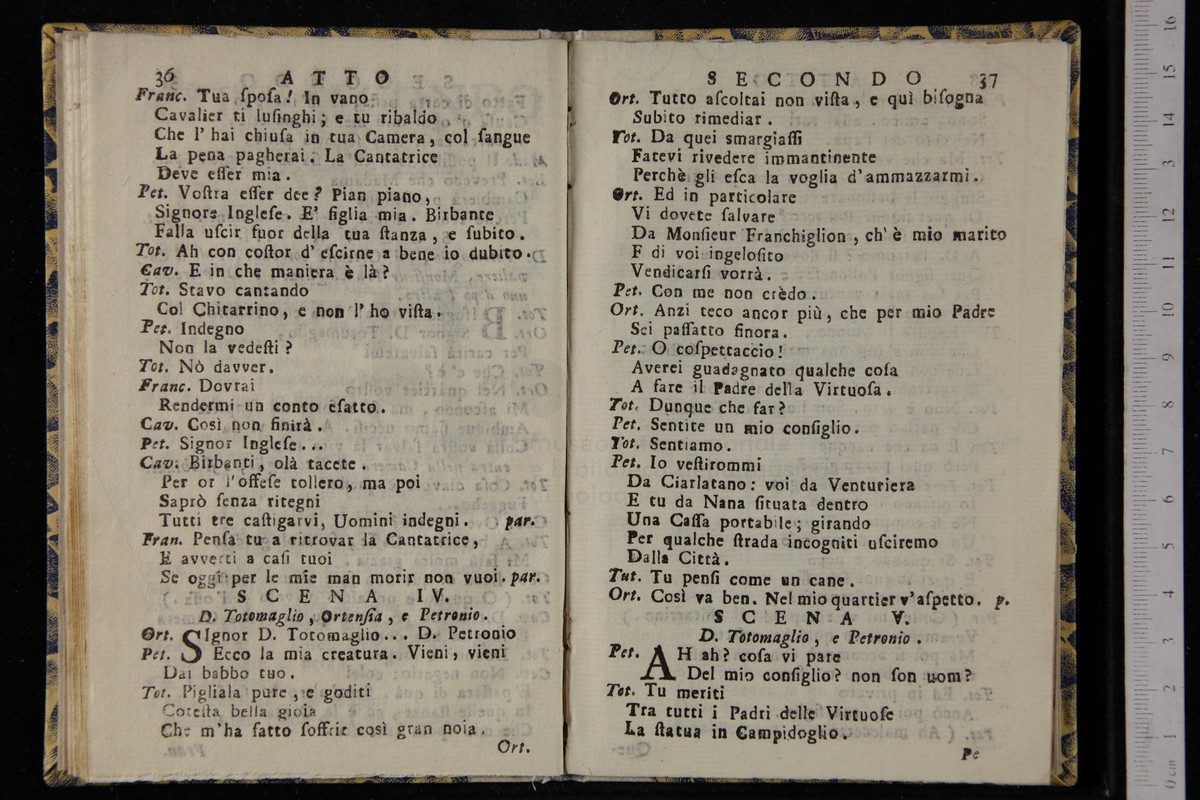 36 ATTO
Franc. Tua ſpoſa! In vano
Cavalier ti luſinghi; e tu ribaldo
Che l' hai chiuſa in tua Camera, col ſangue
La pena pagherai. La Cantatrice
Deve eſſer mia.
Pet. Voſtra eſſer dee? Pian piano,
Signore Ingleſe. E' figlia mia. Birbante
Falla uſcir fuor della tua ſtanza, e ſubito.
Tot. Ah con coſtor d' eſcirne a bene io dubito.
Cav. E in che maniera è là?
Tot. Stavo cantando
Col Chitarrino, e non l' ho viſta.
Pet. Indegno
Non la vedeſti?
Tot. Nò davver.
Franc. Dovrai
Rendermi un conto eſatto.
Cav. Così non finirà.
Pet. Signor Ingleſe...
Cav. Birbanti, olà tacete.
Per or l'offeſe tollero, ma poi
Saprò ſenza ritegni
Tutti tre caſtigarvi, Uomini indegni. par.
Fran. Penſa tu a ritrovar la Cantatrice,
E avverti a caſi tuoi
Se oggi per le mie man morir non vuoi. par.
SCENA IV.
D. Totomaglio, Ortenſia, e Petronio.
Ort. SIgnor D. Totomaglio... D. Petronio
Pet. Ecco la mia creatura. Vieni, vieni
Dal babbo tuo.
Tot. Pigliala pure, e goditi
Coteſta bella gioia
Che m'ha fatto ſoffrir così gran noia.
Ort.
SECONDO 37
Ort. Tutto aſcoltai non viſta, e quì biſogna
Subito rimediar.
Tot. Da quei smargiaſſi
Fatevi rivedere immantinente
Perchè gli eſca la voglia d'ammazzarmi.
Ort. Ed in particolare
Vi dovete ſalvare
Da Monſieur Franchiglion, ch' è mio marito
E di voi ingeloſito
Vendicarſi vorrà.
Pet. Con me non crèdo.
Ort. Anzi teco ancor più, che per mio Padre
Sei paſſatto finora.
Pet. O coſpettaccio!
Averei guadagnato qualche coſa
A fare il Padre della Virtuoſa.
Tot. Dunque che far?
Pet. Sentite un mio conſiglio.
Tot. Sentiamo.
Pet. Io veſtirommi
Da Ciarlatano: voi da Venturiera
E tu da Nana ſituata dentro
Una Caſſa portabile; girando
Per qualche ſtrada incogniti uſciremo
Dalla Città.
Tut. Tu penſi come un cane.
Ort. Così va ben. Nel mio quartier v'aſpetto. p.
SCENA V.
D. Totomaglio, e Petronio.
Pet. AH ah? coſa vi pare
Del mio conſiglio? non ſon uom?
Tot. Tu meriti
Tra tutti i Padri delle Virtuoſe
La ſtatua in Campidoglio.
Pe